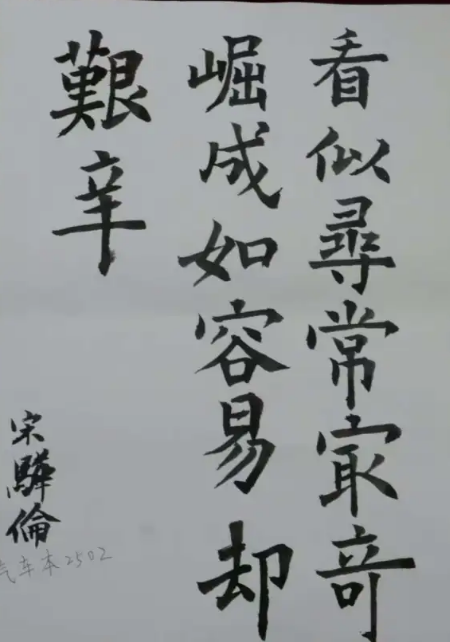 看似尋常㝡竒
崛成如容易却
艱辛
宋驊倫
汽车本2502